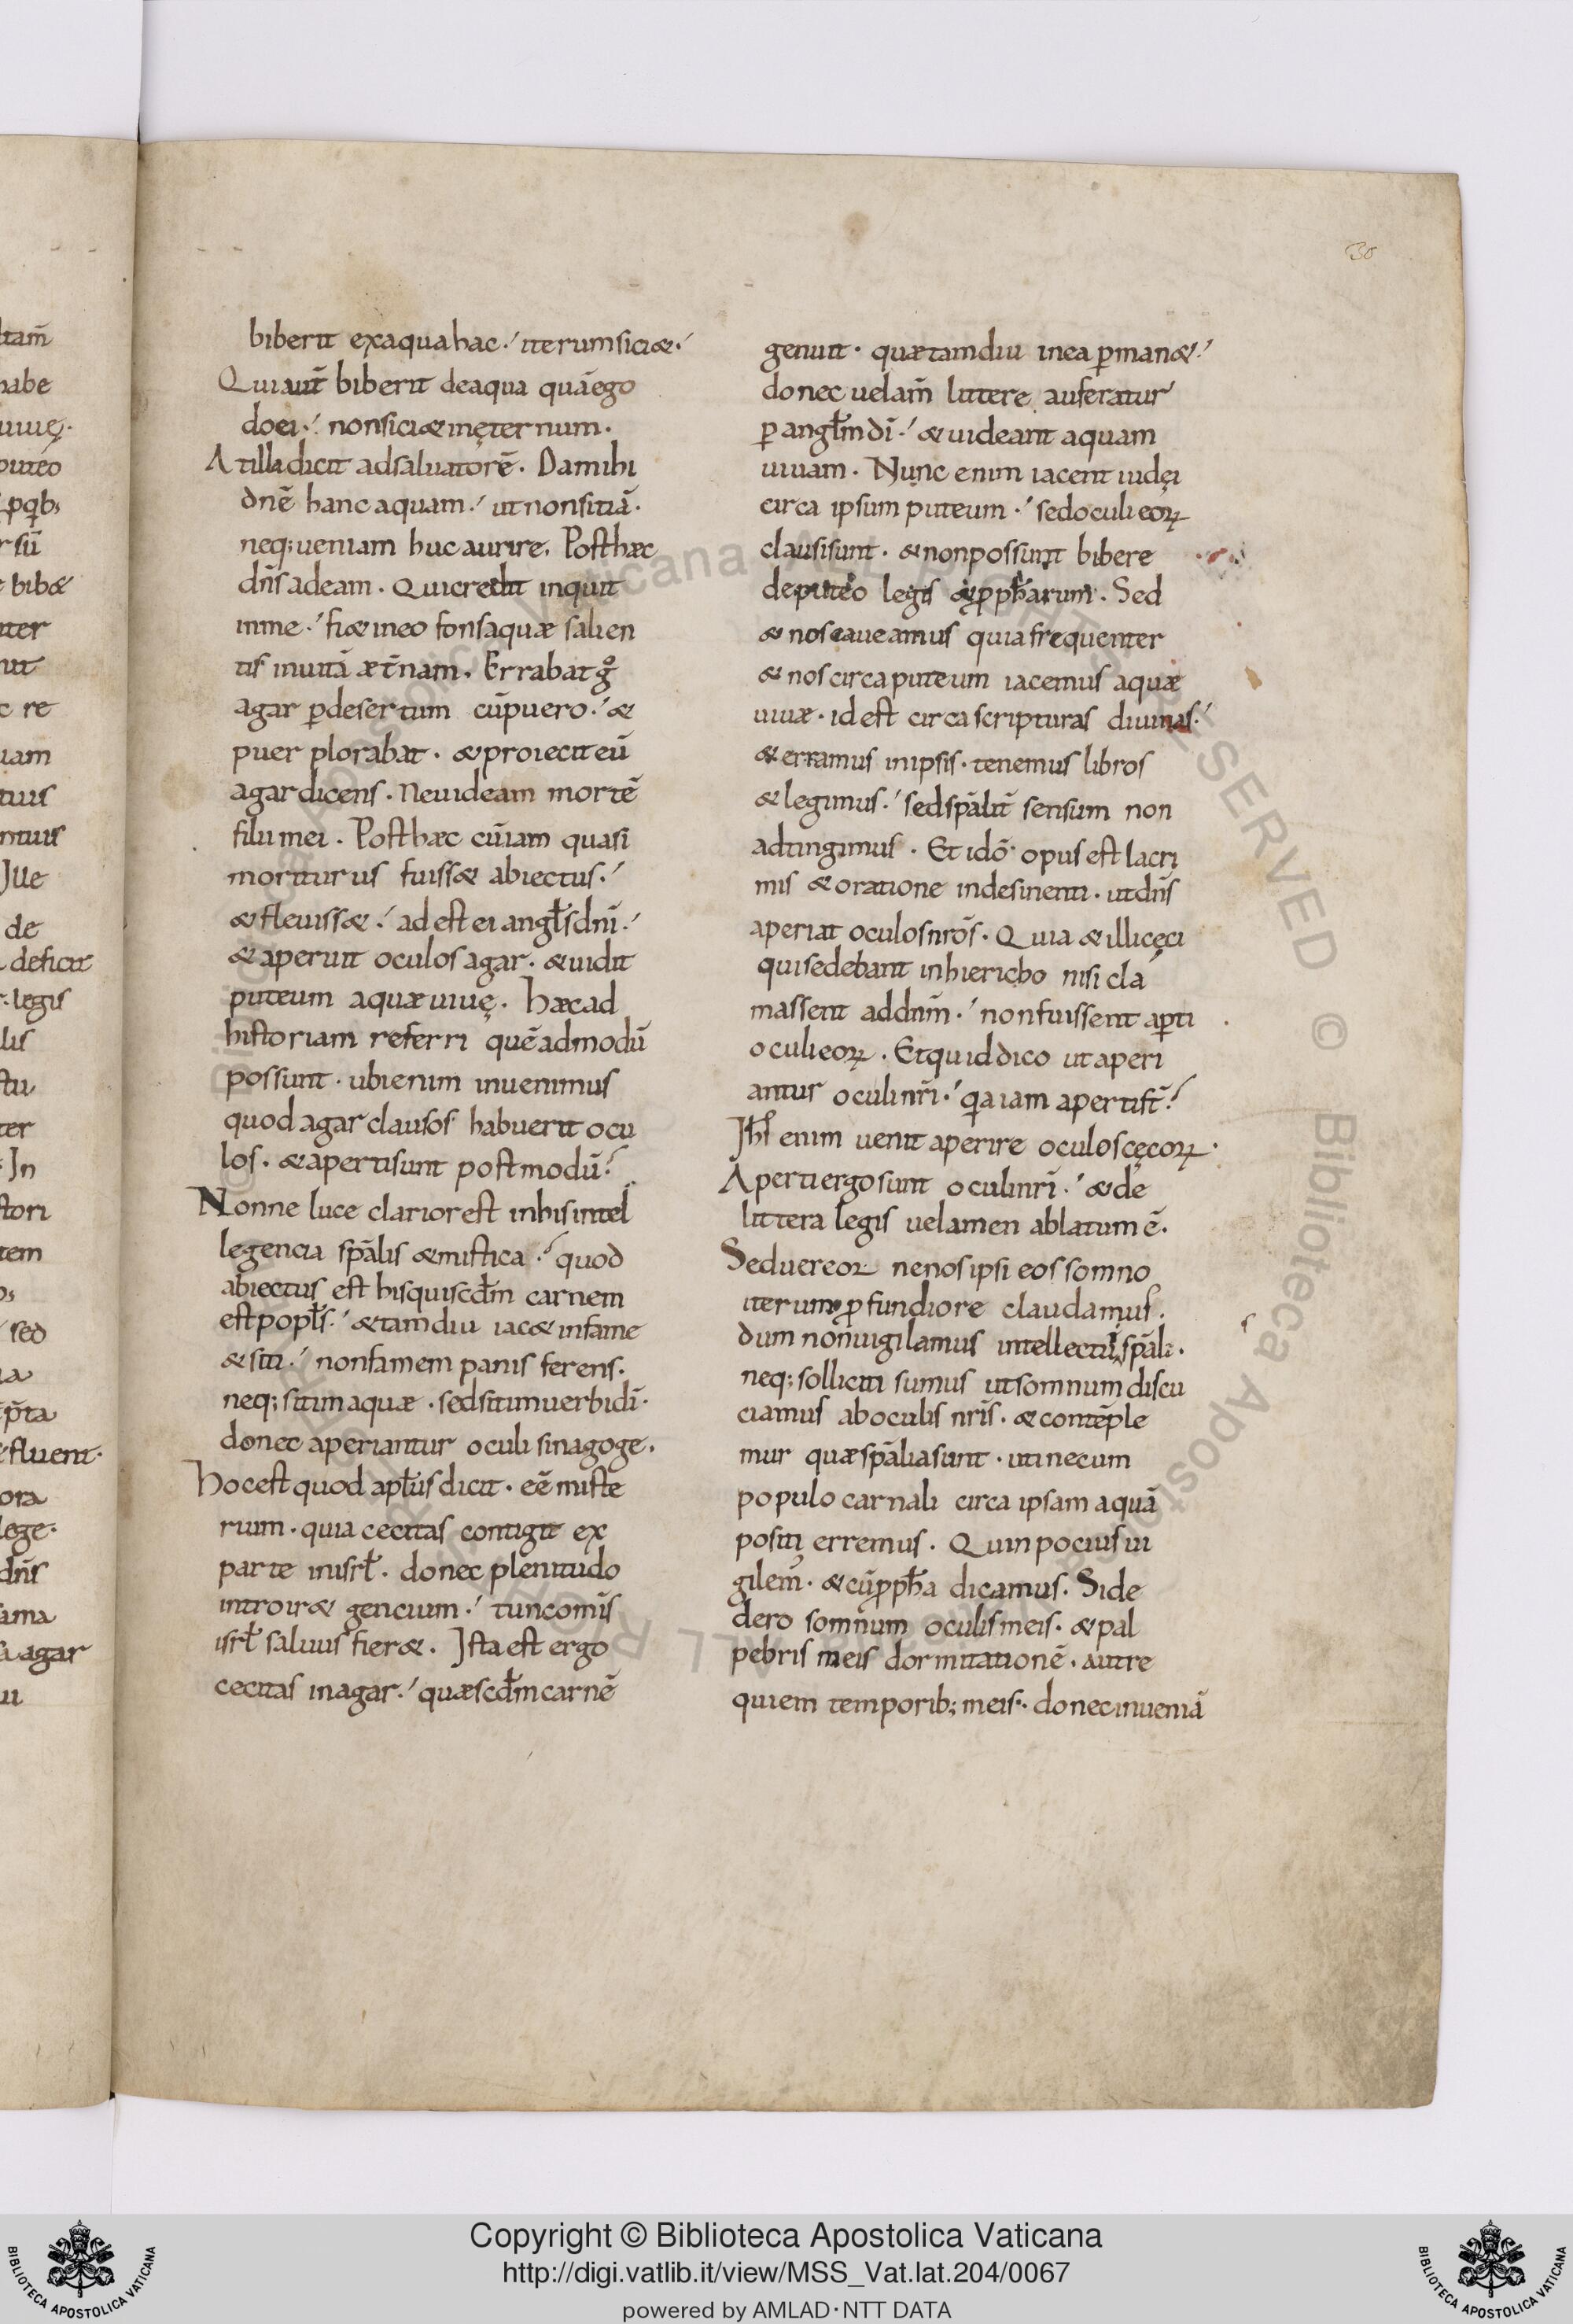 30
biberit ex aqua hac· iterum siciet·
Qui aut̄ biberit de aqua quā ego
do ei· non siciet in ęternum·
At illa dicit ad saluatorē· Da mihi
dn̄e hanc aquam· ut non sitiā·
neq; ueniam huc aurire. Post hæc
dn̄s ad eam· Qui credit inquit
in me· fiet in eo fons aquæ salien
tis in uitā æt̄nam. Errabat gͦ
agar ꝑ desertum cū puero· &
puer plorabat· & proiecit eū
agar dicens. Ne uideam mortē
filii mei. Post hæc cū iam quasi
moriturus fuisset abiectus·
& fleuisset· adest ei angłs dn̄i·
& aperuit oculos agar. & uidit
puteum aquæ uiuę. Hæc ad
historiam referri quēadmodū
possunt· ubi enim inuenimus
quod agar clausos habuerit ocu
los. & aperti sunt post modū?
Nonne luce clarior est in his intel
legencia sp̄alis & mistica? quod
abiectus est his qui scđm carnem
est popłs· & tamdiu iacet in fame
& siti· non famem panis ferens.
neq; sitim aquæ· sed sitim uerbi dī·
donec aperiantur oculi sinagoge.
Hoc est quod apłus dicit· eē miste
rium· quia cecitas contigit ex
parte in isrł· donec plenitudo
introiret gencium· tunc om̄is
isrł saluus fieret. Ista est ergo
cecitas in agar· quæ scđm carnē
genuit· quæ tamdiu in ea ꝑmanet·
donec uelam̄ littere auferatur
ꝑ angłm dī· & uideant aquam
uiuam. Nunc enim iacent iudęi
circa ipsum puteum· sed oculi eoꝝ
clausi sunt· & non possunt bibere
de puteo legis & ꝓpħarum. Sed
& nos caueamus quia frequenter
& nos circa puteum iacemus aquæ
uiuæ· id est circa scripturas diuinas·
& erramus in ipsis· tenemus libros
& legimus· sed sp̄alit̄ sensum non
adtingimus. Et idō opus est lacri
mis & oratione indesinenti· ut dn̄s
aperiat oculos nr̄os. Quia & illi cęci
qui sedebant in hiericho nisi cla
massent ad dn̄m· non fuissent aꝑti
oculi eoꝝ. Et quid dico ut aperi
antur oculi nr̄i· qa iam aperti st̄?
Iħs enim uenit aperire oculos cęcoꝝ·
Aperti ergo sunt oculi nr̄i· & de
littera legis uelamen ablatum ē.
Sed uereor ne nos ipsi eos somno
iterum ꝓfundiore claudamus.
dum non uigilamus intellectu sp̄ali·
neq; solliciti sumus ut somnum discu
ciamus ab oculis nr̄is. & contēple
mur quæ sp̄alia sunt· uti ne cum
populo carnali circa ipsam aquā
positi erremus. Quin pocius ui
gilem̓· & cū ꝓpħa dicamus. Si de
dero somnum oculis meis· & pal
pebris meis dormitationē. aut re
quiem temporib; meis· donec inueniā
Copyright © Biblioteca Apostolica Vaticana
http://digi.vatlib.it/view/MSS_Vat.lat.204/0067
powered by AMLAD·NTT DATA